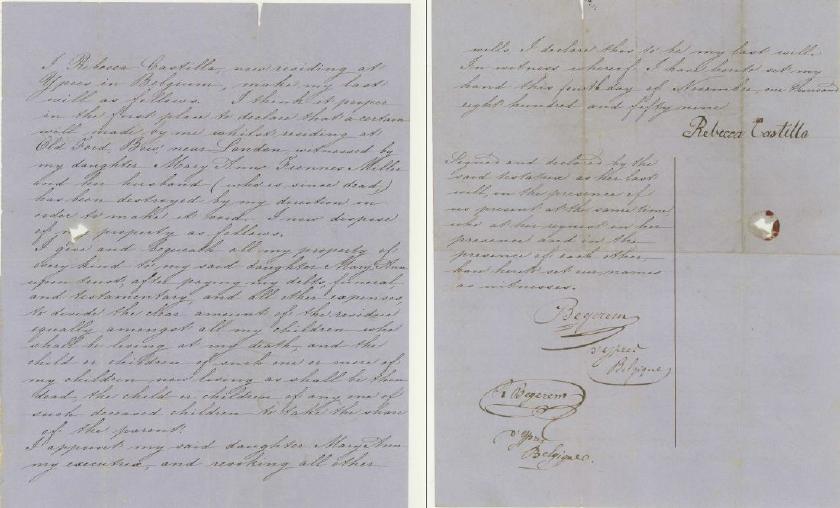 I Rebecca Castilla, now residing at
Ypres in Belgium, make my last
will as follows. I think it proper
in the first place to declare that a certain
will made by me whilst residing at
Old Ford, Bow near London, witnessed by
my daughter Mary Ann Fiennes Miller
and her husband (who is since dead)
has been destroyed by my direction in
order to make it void. I now dispose
of my property as follows.
I give and bequeath all my property of
every kind to my said daughter Mary Ann
upon trust, after paying my debts, funeral
and testamentary, and all other expenses,
to divide the clear amount of the residue
equally amongst all my children who
shall be living at my death, and the
child or children of such one or more of
my children now living as shall be then
dead, the child or children of any one of
such deceased children to take the share
of the parent.
I appoint my said daughter Mary Ann
my executrix, and revoking all other
wills I declare this to be my last will.
In witness whereof I have hereto set my
hand this fourth day of November, one thousand
eight hundred and fifty nine
Rebecca Castilla
Signed and declared by the
said testatrix as her last
will, in the presence of
us present at the same time
who at her request in her
presence and in the
presence of each other,
have hereto set our names
as witnesses.
Begerem
d'Ypres
Belgique
Begerem
d'Ypres
Belgique.